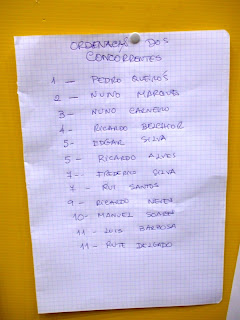 ORDENAÇAS DOS
CONCORRENTES
1 - PEDRO QUEIRÓS
2 - NUNO MARQUES
3 - NUNO CARNEIRO
4 - RICARDO BELCHIOR
5 - EDGAR SILVA
5 - RICARDO ALVES
7 - FREDERICO SILVA
7 - RUI SANTOS
9 - RICARDO NEVES
10 - MANUEL SOARES
11 - LUIS BARBOSA
11 - RUTE DELGADO